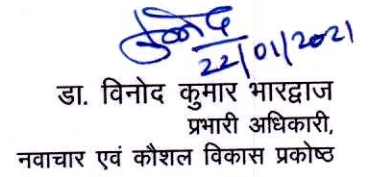 22/01/2021
डा. विनोद कुमार भारद्वाज
प्रभारी अधिकारी,
नवाचार एवं कौशल विकास प्रकोष्ठ